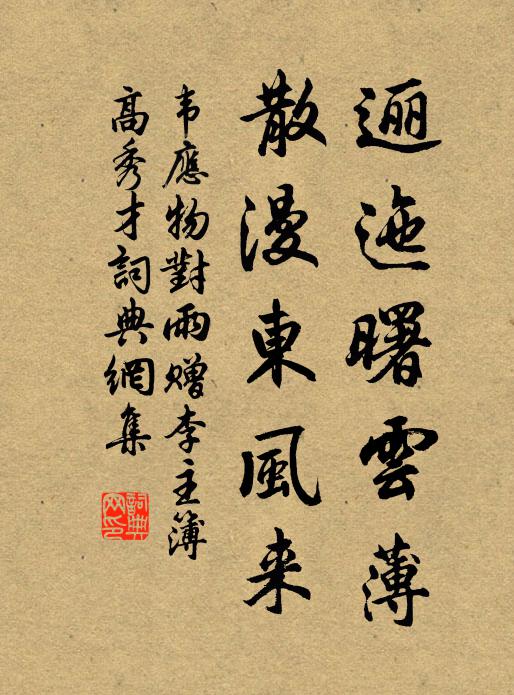 逦迤曙雲薄
散漫東風来
韦應物對雨赠李主簿
高秀才詞典網集
詞典网印